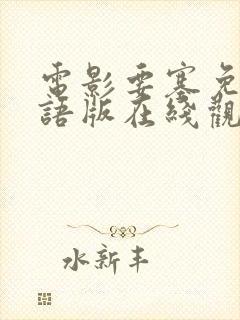 電影要塞免
語版在綫觀
水新丰